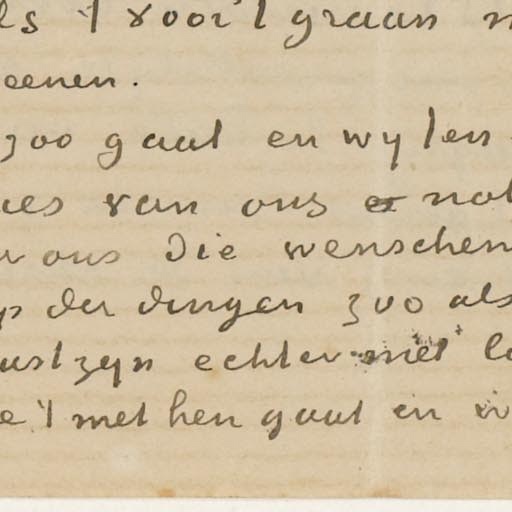 ls 't voor 't graan
eenen.
zoo gaat en wy ten
ues van ons er not
ons die wenschen
op der dingen zoo als
ustzyn echter niet la
e 't met hen gaat en w